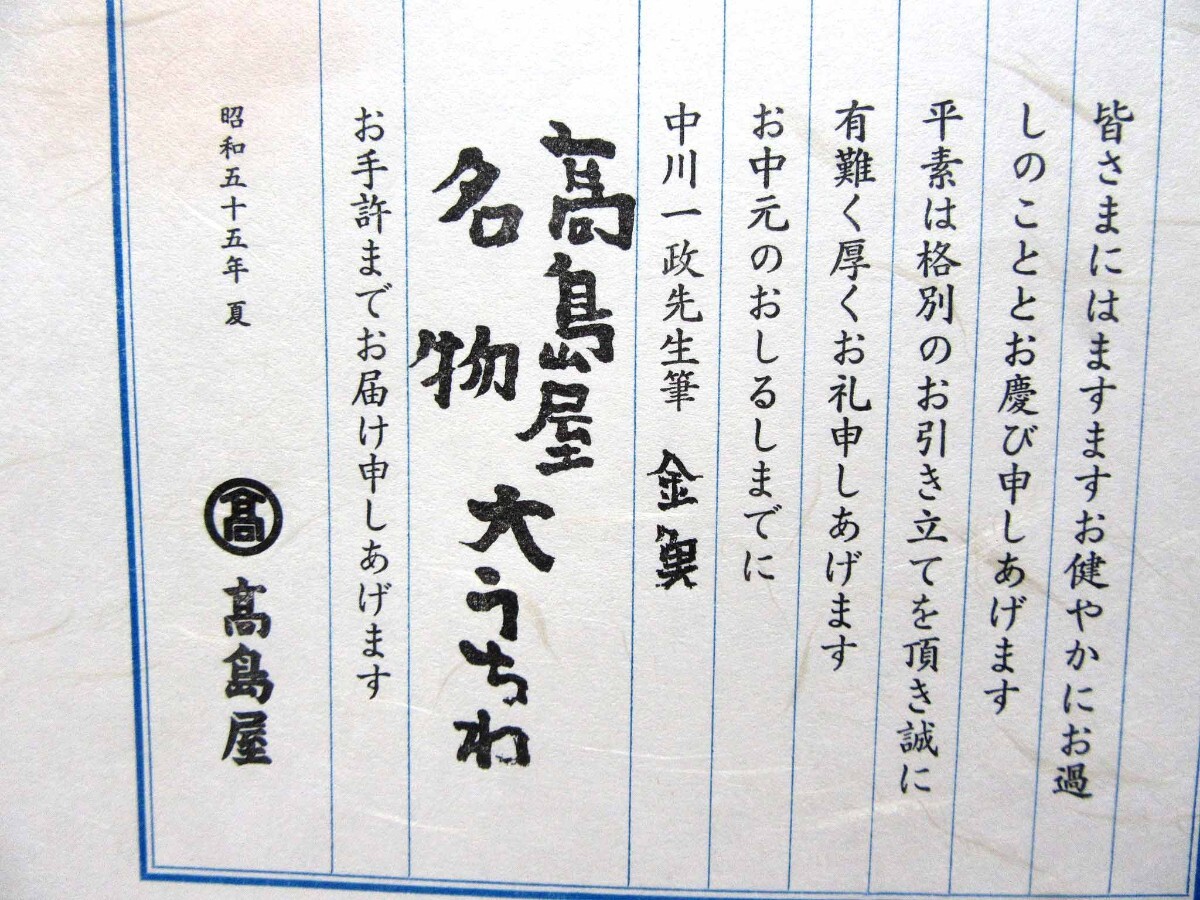 皆さまにはますますお健やかにお過
しのこととお慶び申しあげます
平素は格別のお引き立てを頂き誠に
有難く厚くお礼申しあげます
お中元のおしるしまでに
中川一政先生筆 金奥
髙島屋
名物 大うちわ
お手許までお届け申しあげます
昭和五十五年 夏
髙 髙島屋